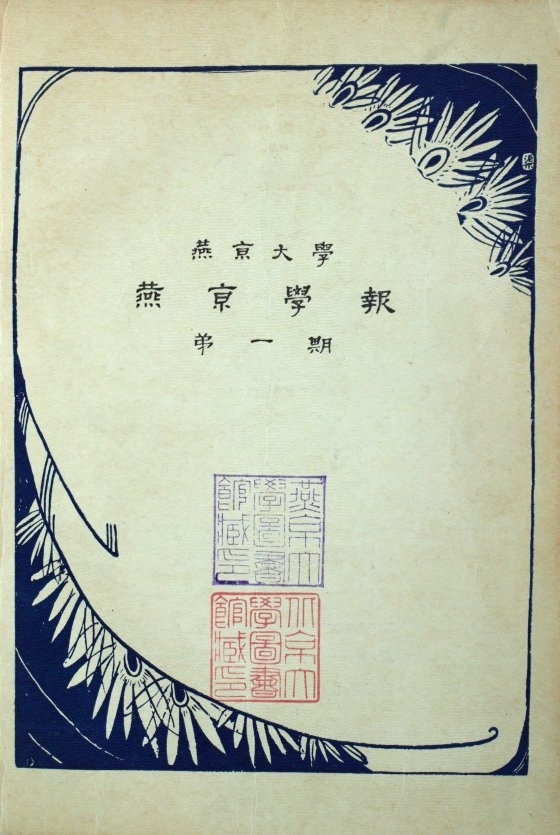 燕京大學
燕京學報
弟一期
燕京大
學圖書
館臧印
北京大
學圖書
館臧印